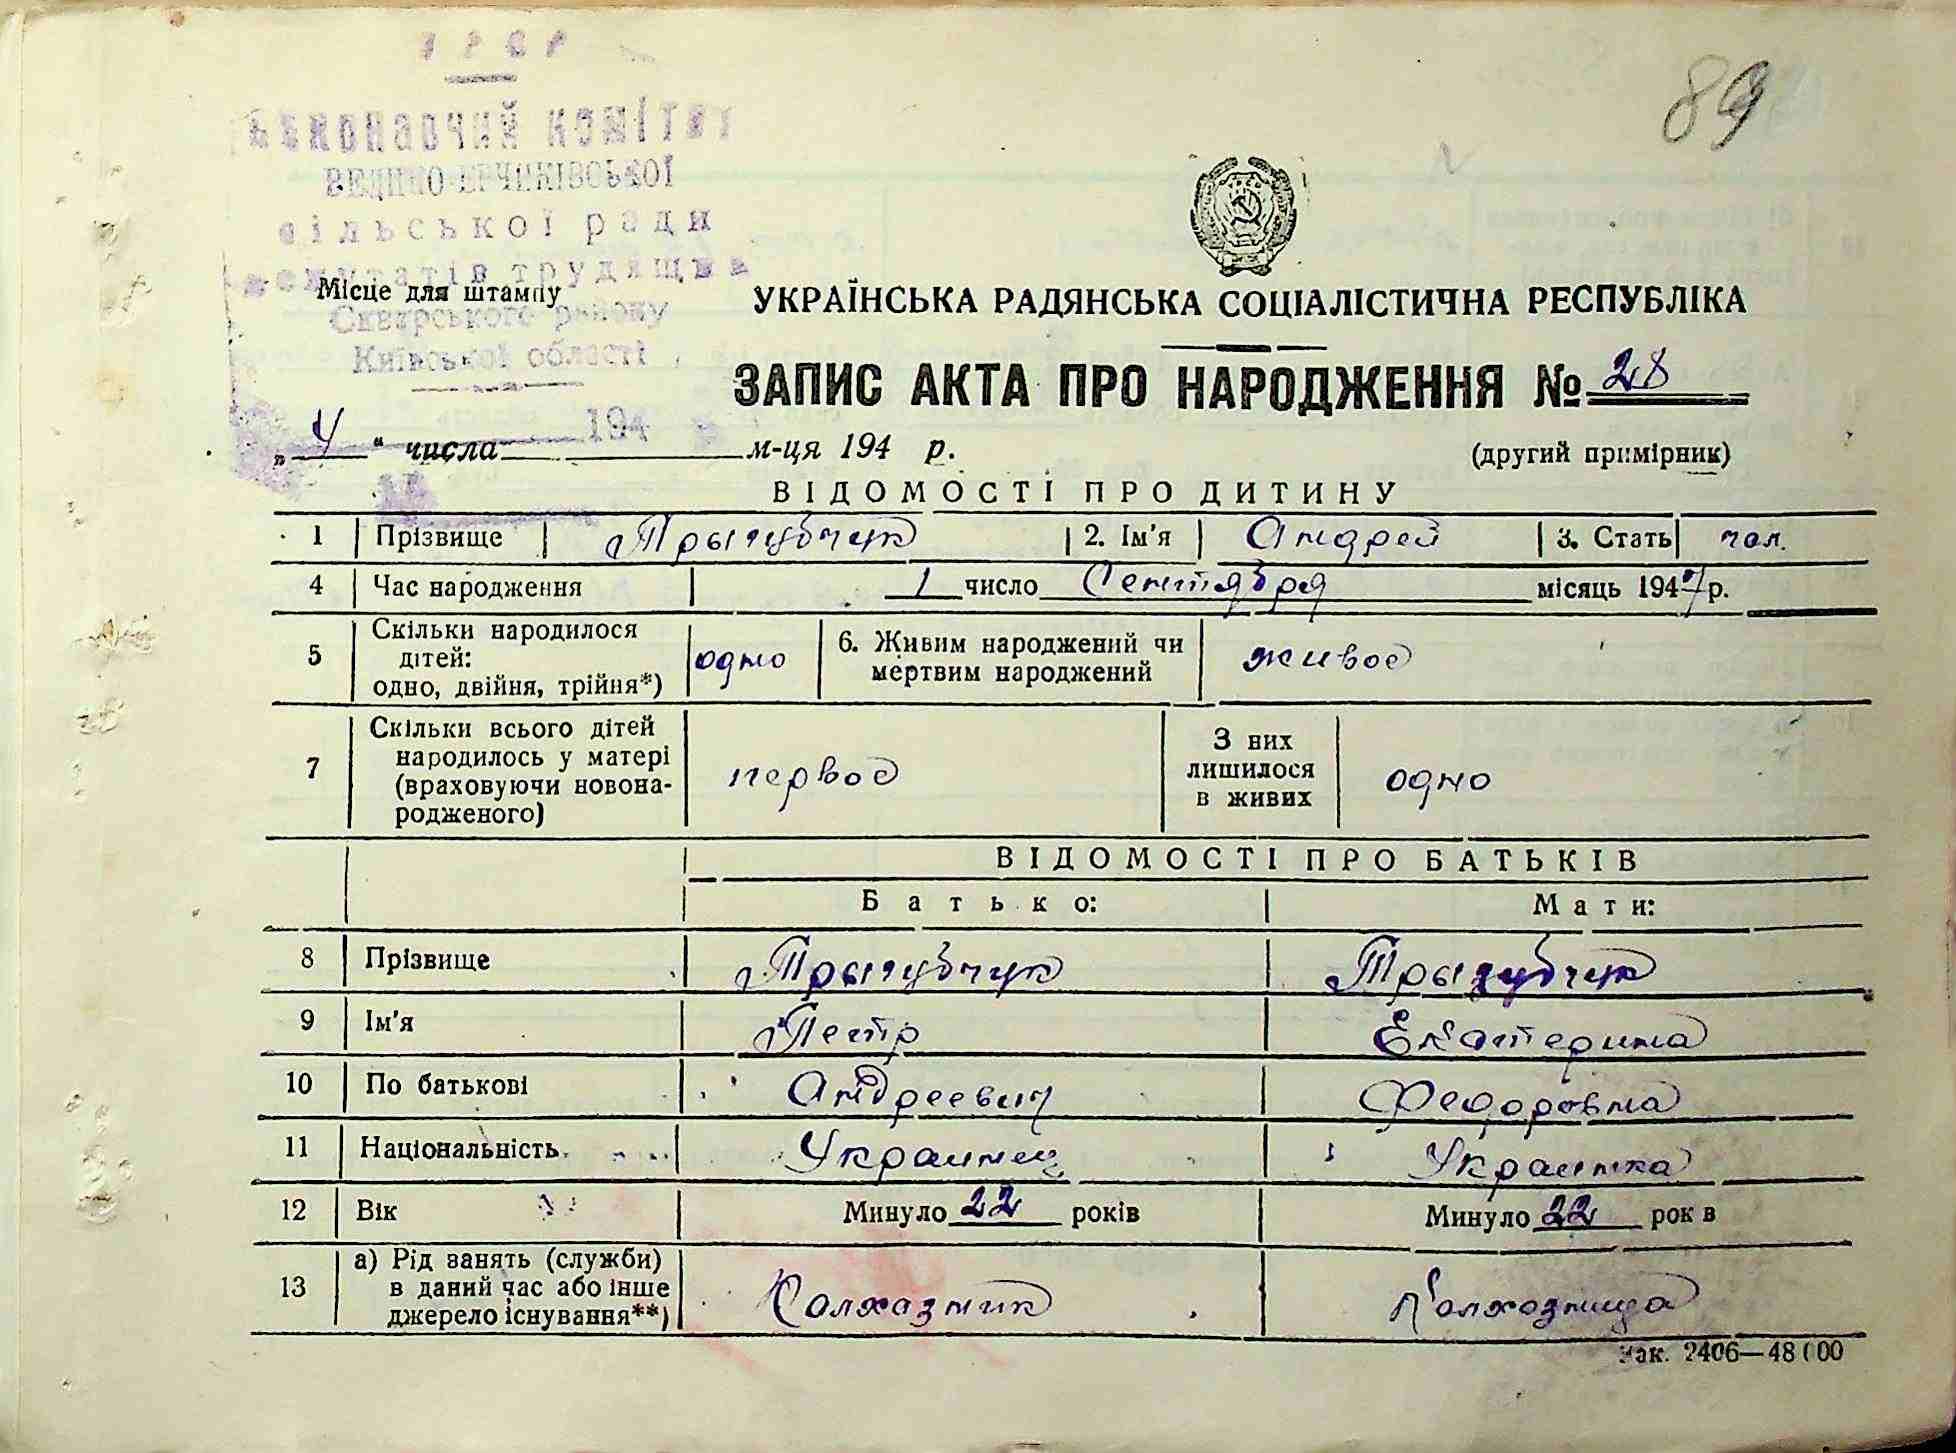 УРСР
Виконавчий комітет
сільської ради
депутатів трудящих
Місце для штампу
Сквирського району
Київської області
194
89
УКРАЇНСЬКА РАДЯНСЬКА СОЦІАЛІСТИЧНА РЕСПУБЛІКА
ЗАПИС АКТА ПРО НАРОДЖЕННЯ № 28
„ 4 “ числа м-ця 194 р.
(другий примірник)
ВІДОМОСТІ ПРО ДИТИНУ
1 Прізвище Трызубчук 2. Ім'я Андрей 3. Стать чол.
4 Час народження 1 число Сентября місяць 1947 р.
5 Скільки народилося дітей: одно, двійня, трійня*) одно 6. Живим народжений чи мертвим народжений живое
7 Скільки всього дітей народилось у матері (враховуючи новонародженого) первое З них лишилося в живих одно
ВІДОМОСТІ ПРО БАТЬКІВ
Батько: Мати:
8 Прізвище Трызубчук Трызубчук
9 Ім'я Петр Екатерина
10 По батькові Андреевич Федоровна
11 Національність Украинец Украинка
12 Вік Минуло 22 років Минуло 22 років
13 а) Рід занять (служби) в даний час або інше джерело існування**) Колхазник Колхозница
Зак. 2406—48000